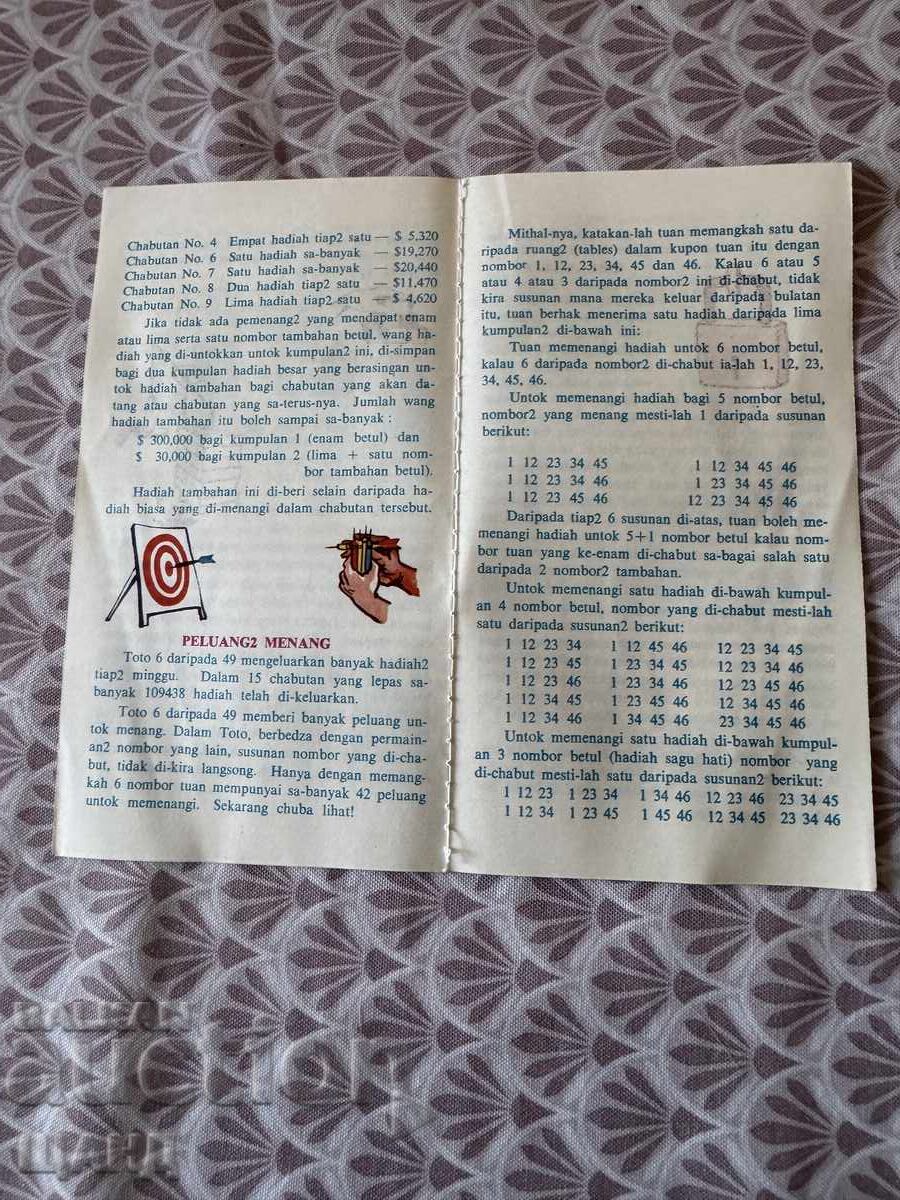 Chabutan No. 4 Empat hadiah tiap2 satu — $ 5,320
Chabutan No. 6 Satu hadiah sa-banyak — $19,270
Chabutan No. 7 Satu hadiah sa-banyak — $20,440
Chabutan No. 8 Dua hadiah tiap2 satu — $11,470
Chabutan No. 9 Lima hadiah tiap2 satu — $ 4,620
Jika tidak ada pemenang2 yang mendapat enam
atau lima serta satu nombor tambahan betul, wang ha-
diah yang di-untokkan untok kumpulan2 ini, di-simpan
bagi dua kumpulan hadiah besar yang berasingan un-
tok hadiah tambahan bagi chabutan yang akan da-
tang atau chabutan yang sa-terus-nya. Jumlah wang
hadiah tambahan itu boleh sampai sa-banyak :
$ 300,000 bagi kumpulan 1 (enam betul) dan
$ 30,000 bagi kumpulan 2 (lima + satu nom-
bor tambahan betul).
Hadiah tambahan ini di-beri selain daripada ha-
diah biasa yang di-menangi dalam chabutan tersebut.
PELUANG2 MENANG
Toto 6 daripada 49 mengeluarkan banyak hadiah2
tiap2 minggu. Dalam 15 chabutan yang lepas sa-
banyak 109438 hadiah telah di-keluarkan.
Toto 6 daripada 49 memberi banyak peluang un-
tok menang. Dalam Toto, berbedza dengan permain-
an2 nombor yang lain, susunan nombor yang di-cha-
but, tidak di-kira langsong. Hanya dengan memang-
kah 6 nombor tuan mempunyai sa-banyak 42 peluang
untok memenangi. Sekarang chuba lihat!
Mithal-nya, katakan-lah tuan memangkah satu da-
ripada ruang2 (tables) dalam kupon tuan itu dengan
nombor 1, 12, 23, 34, 45 dan 46. Kalau 6 atau 5
atau 4 atau 3 daripada nombor2 ini di-chabut, tidak
kira susunan mana mereka keluar daripada bulatan
itu, tuan berhak menerima satu hadiah daripada lima
kumpulan2 di-bawah ini:
Tuan memenangi hadiah untok 6 nombor betul,
kalau 6 daripada nombor2 di-chabut ia-lah 1, 12, 23,
34, 45, 46.
Untok memenangi hadiah bagi 5 nombor betul,
nombor2 yang menang mesti-lah 1 daripada susunan
berikut:
1 12 23 34 45 1 12 34 45 46
1 12 23 34 46 1 23 34 45 46
1 12 23 45 46 12 23 34 45 46
Daripada tiap2 6 susunan di-atas, tuan boleh me-
menangi hadiah untok 5+1 nombor betul kalau nom-
bor tuan yang ke-enam di-chabut sa-bagai salah satu
daripada 2 nombor2 tambahan.
Untok memenangi satu hadiah di-bawah kumpul-
an 4 nombor betul, nombor yang di-chabut mesti-lah
satu daripada susunan2 berikut:
1 12 23 34 1 12 45 46 12 23 34 45
1 12 23 45 1 23 34 45 12 23 34 46
1 12 23 46 1 23 34 46 12 23 45 46
1 12 34 45 1 23 45 46 12 34 45 46
1 12 34 46 1 34 45 46 23 34 45 46
Untok memenangi satu hadiah di-bawah kumpul-
an 3 nombor betul (hadiah sagu hati) nombor yang
di-chabut mesti-lah satu daripada susunan2 berikut:
1 12 23 1 23 34 1 34 46 12 23 46 23 34 45
1 12 34 1 23 45 1 45 46 12 34 45 23 34 46
BALKAN
АУКЦИОН
ЦАНЦ